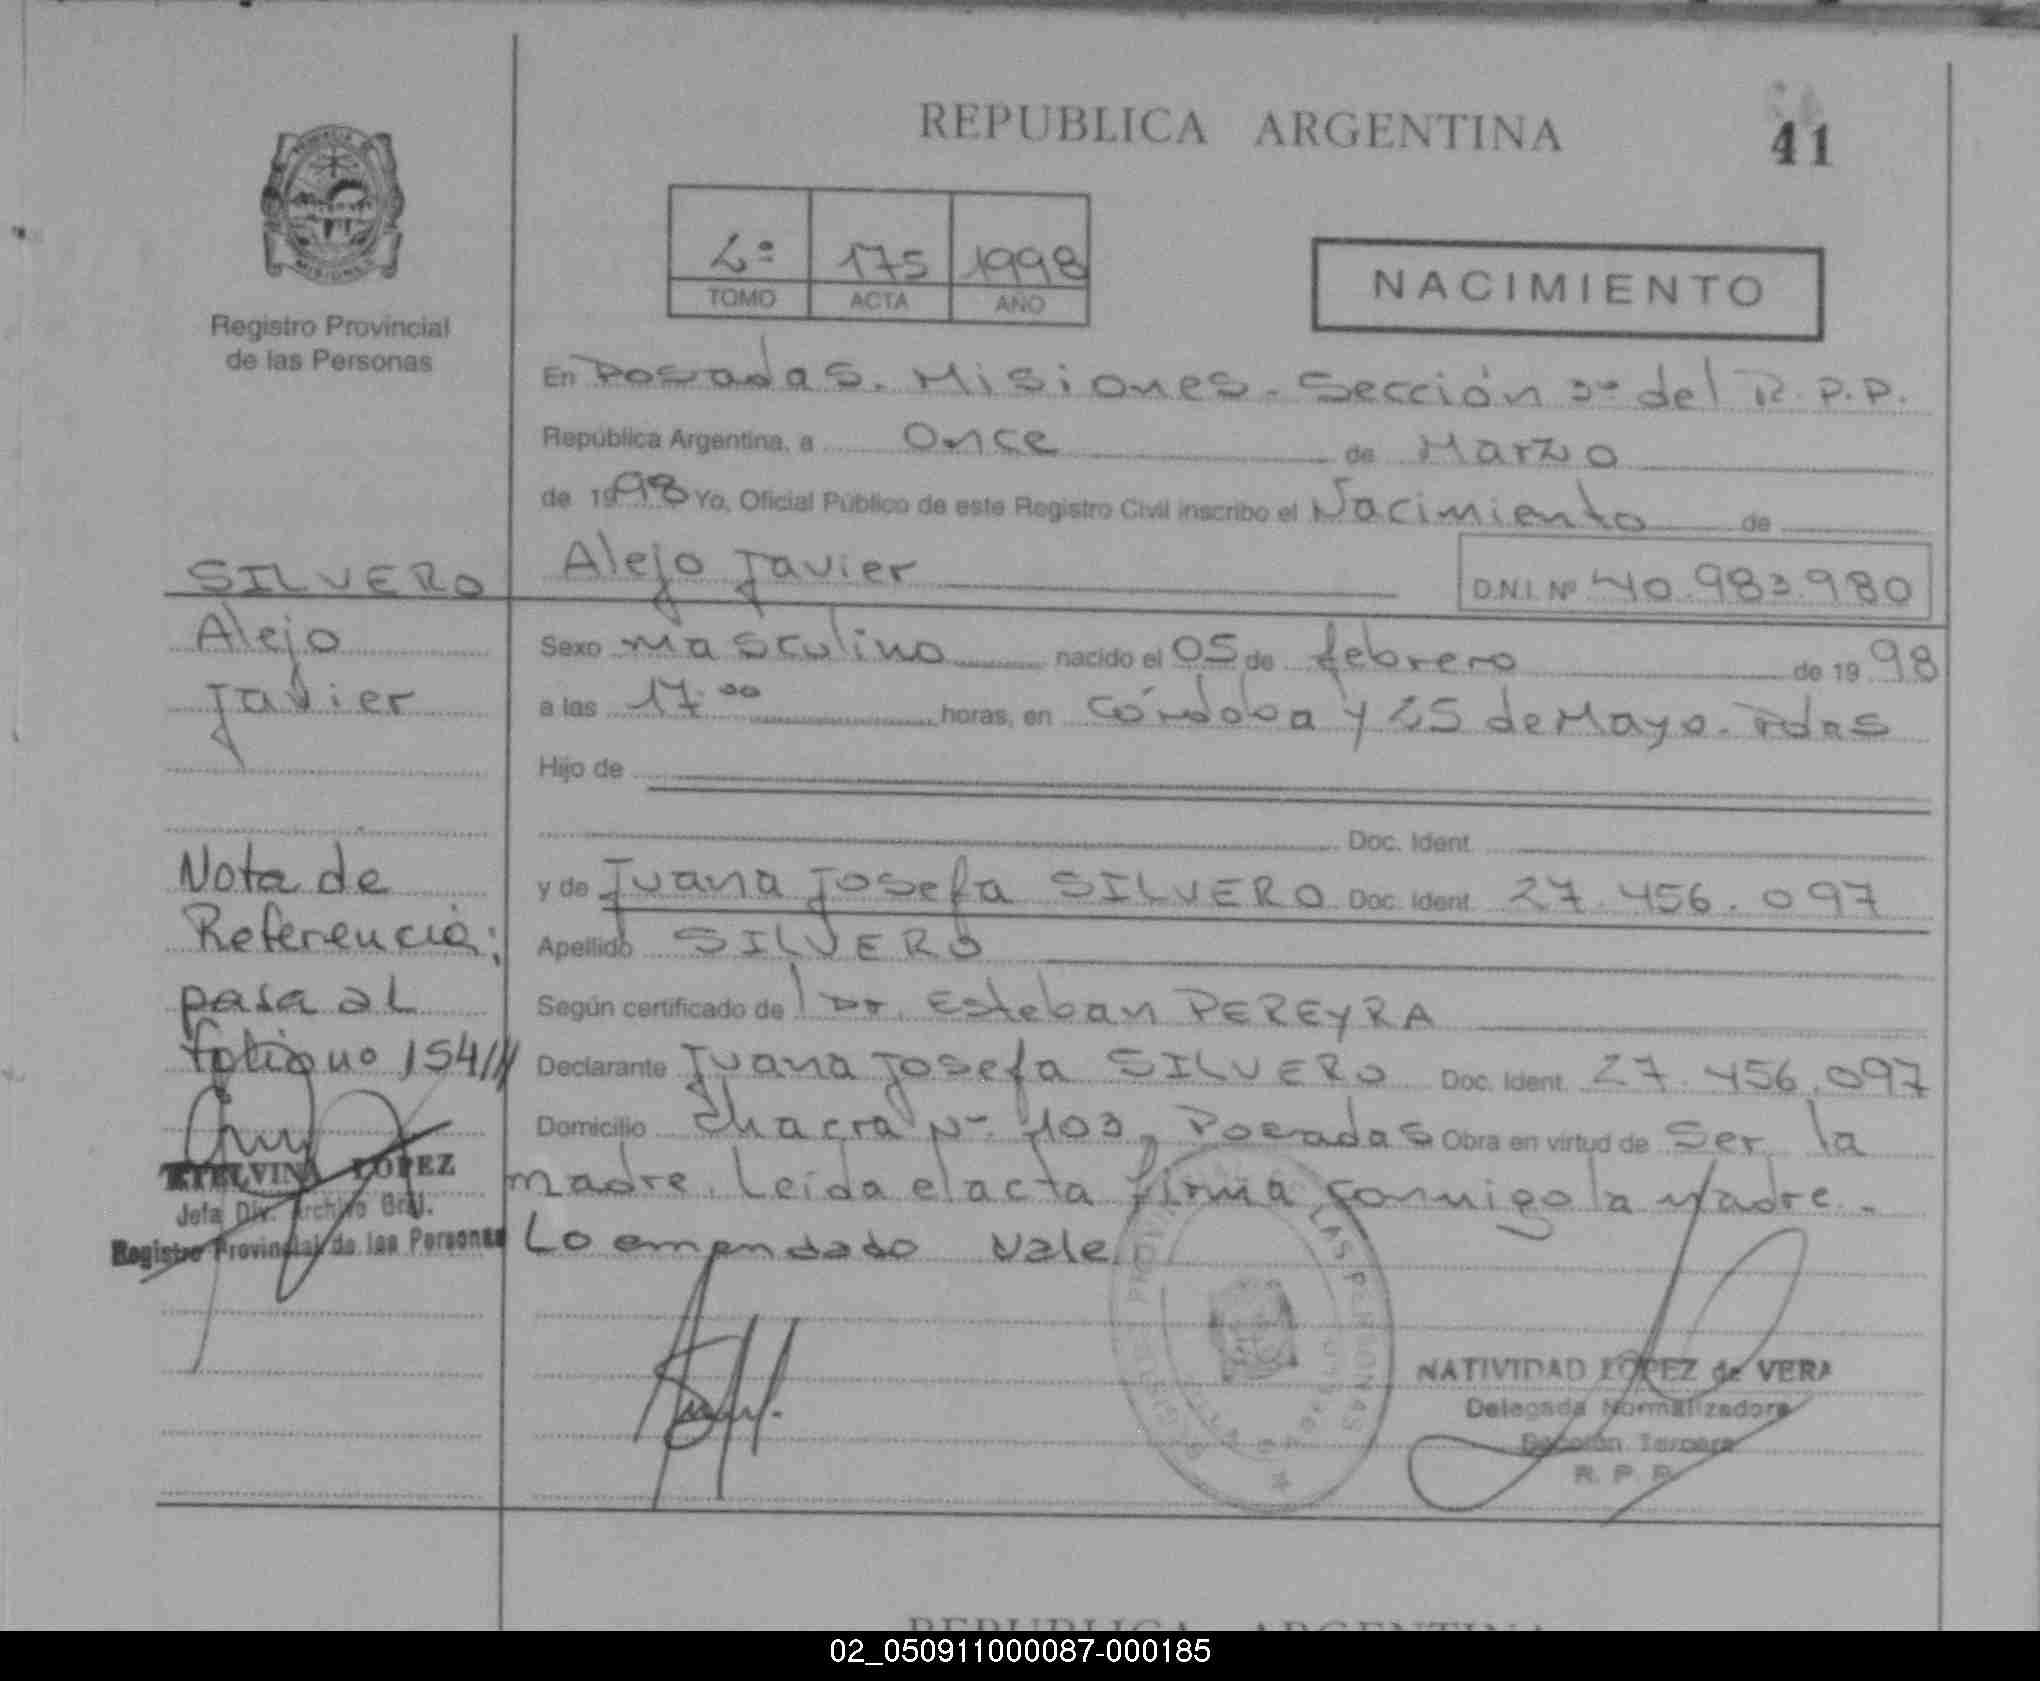 REPUBLICA ARGENTINA
41
2º 175 1998
TOMO ACTA AÑO
NACIMIENTO
Registro Provincial
de las Personas
En Posadas. Misiones. Sección 3º del R.P.P.
República Argentina, a Once de Marzo
de 1998 Yo, Oficial Público de este Registro Civil inscribo el Nacimiento de
Alejo Javier D.N.I. Nº 40.983.980
Sexo masculino nacido el 05 de febrero de 1998
a las 17:00 horas, en Córdoba y 25 de Mayo. Pdas
Hijo de
Doc. Ident.
y de Juana Josefa SILVERO Doc. Ident. 27.456.097
Apellido SILVERO
Según certificado del Dr. Esteban PEREYRA
Declarante Juana Josefa SILVERO Doc. Ident. 27.456.097
Domicilio Chacra Nº 103, Posadas Obra en virtud de Ser la
madre. Leída el acta firma conmigo la madre.
Lo emendado vale.
SILVERO
Alejo
Javier
Nota de
Referencia:
pasa al
folio no 154//
ETELVINA LOPEZ
Jefa Div. Archivo Gral.
Registro Provincial de las Personas
NATIVIDAD LOPEZ de VERA
Delegada Normalizadora
Sección Tercera
R. P. P.
REPUBLICA ARGENTINA
02_050911000087-000185